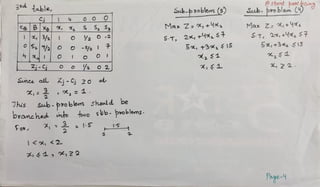 3rd table.
Cj 1 4 0 0 0
CB B XB x1 x2 S1 S2 S3
1 x1 3/2 1 0 1/2 0 -2
0 S2 15/2 0 0 -5/2 1 7
4 x2 1 0 1 0 0 1
Zj-Cj 0 0 1/2 0 2
Since all Zj-Cj ≥ 0 at
x1 = 3/2, x2 = 1.
This sub-problem should be
branched into two sub-problems.
x1 = 3/2 = 1.5
1.5
1 2
1 < x1 < 2
x1 ≤ 1, x1 ≥ 2
Sub-problem (3)
Max Z = x1 + 4x2
S.T. 2x1 + 4x2 ≤ 7
5x1 + 3x2 ≤ 15
x2 ≤ 1
x1 ≤ 1
Sub-problem (4)
Max Z = x1 + 4x2
S.T. 2x1 + 4x2 ≤ 7
5x1 + 3x2 ≤ 15
x2 ≤ 1
x1 ≥ 2.
Page-4